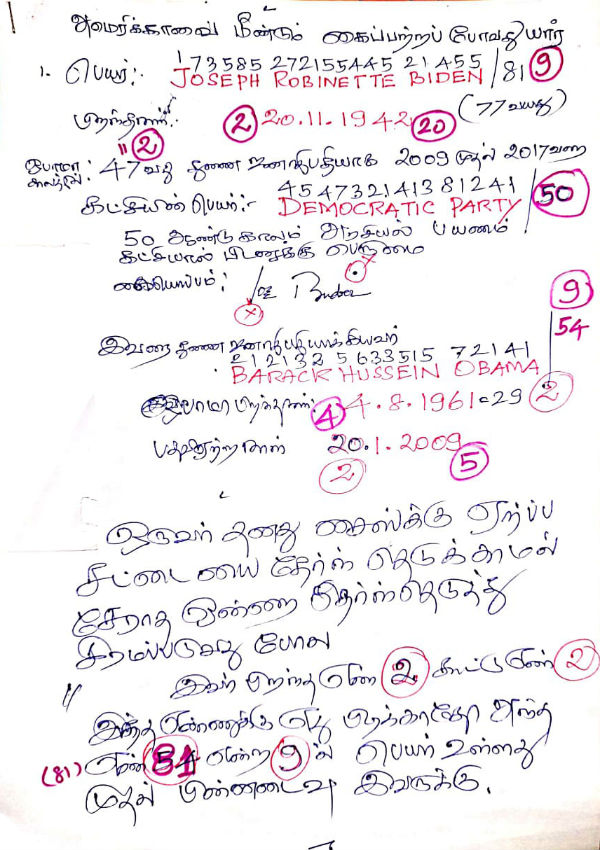 அமெரிக்காவை மீண்டும் கைப்பற்றப் போவது யார்
173585 272155445 21455
1. பெயர்:- JOSEPH ROBINETTE BIDEN / 81 9
பிறந்தநாள்:- 2 20.11.1942 20 (77 வயது)
11 2
ஒபாமா காலத்தில்: 47வது துணை ஜனாதிபதியாக 2009 முதல் 2017வரை
4547321413 81241
கட்சியின் பெயர்:- DEMOCRATIC PARTY / 50
50 ஆண்டு காலம் அரசியல் பயணம்
கட்சியால் பிடனுக்கு பெருமை
கையொப்பம்: Joe Biden
x
9
இவரை துணை ஜனாதிபதியாக்கியவர் 54
212132 5633515 72141
BARACK HUSSEIN OBAMA
ஒபாமா பிறந்தநாள்: 4 4.8.1961=29 2
பதவியேற்றநாள் 20.1.2009
2 5
ஒருவர் தனது சைஸ்க்கு ஏற்ப
சட்டையை தேர்ந்தெடுக்காமல்
சேராத ஒன்னை தேர்ந்தெடுத்து
சிரமப்படுவது போல
இவர் பிறந்த எண் 2 கூட்டு எண் 2
" இந்த எண்ணுக்கு எது பிடிக்காதோ அந்த
(81) எண் 81 என்ற 9 ல் பெயர் உள்ளது
முதல் பின்னடைவு இவருக்கு.